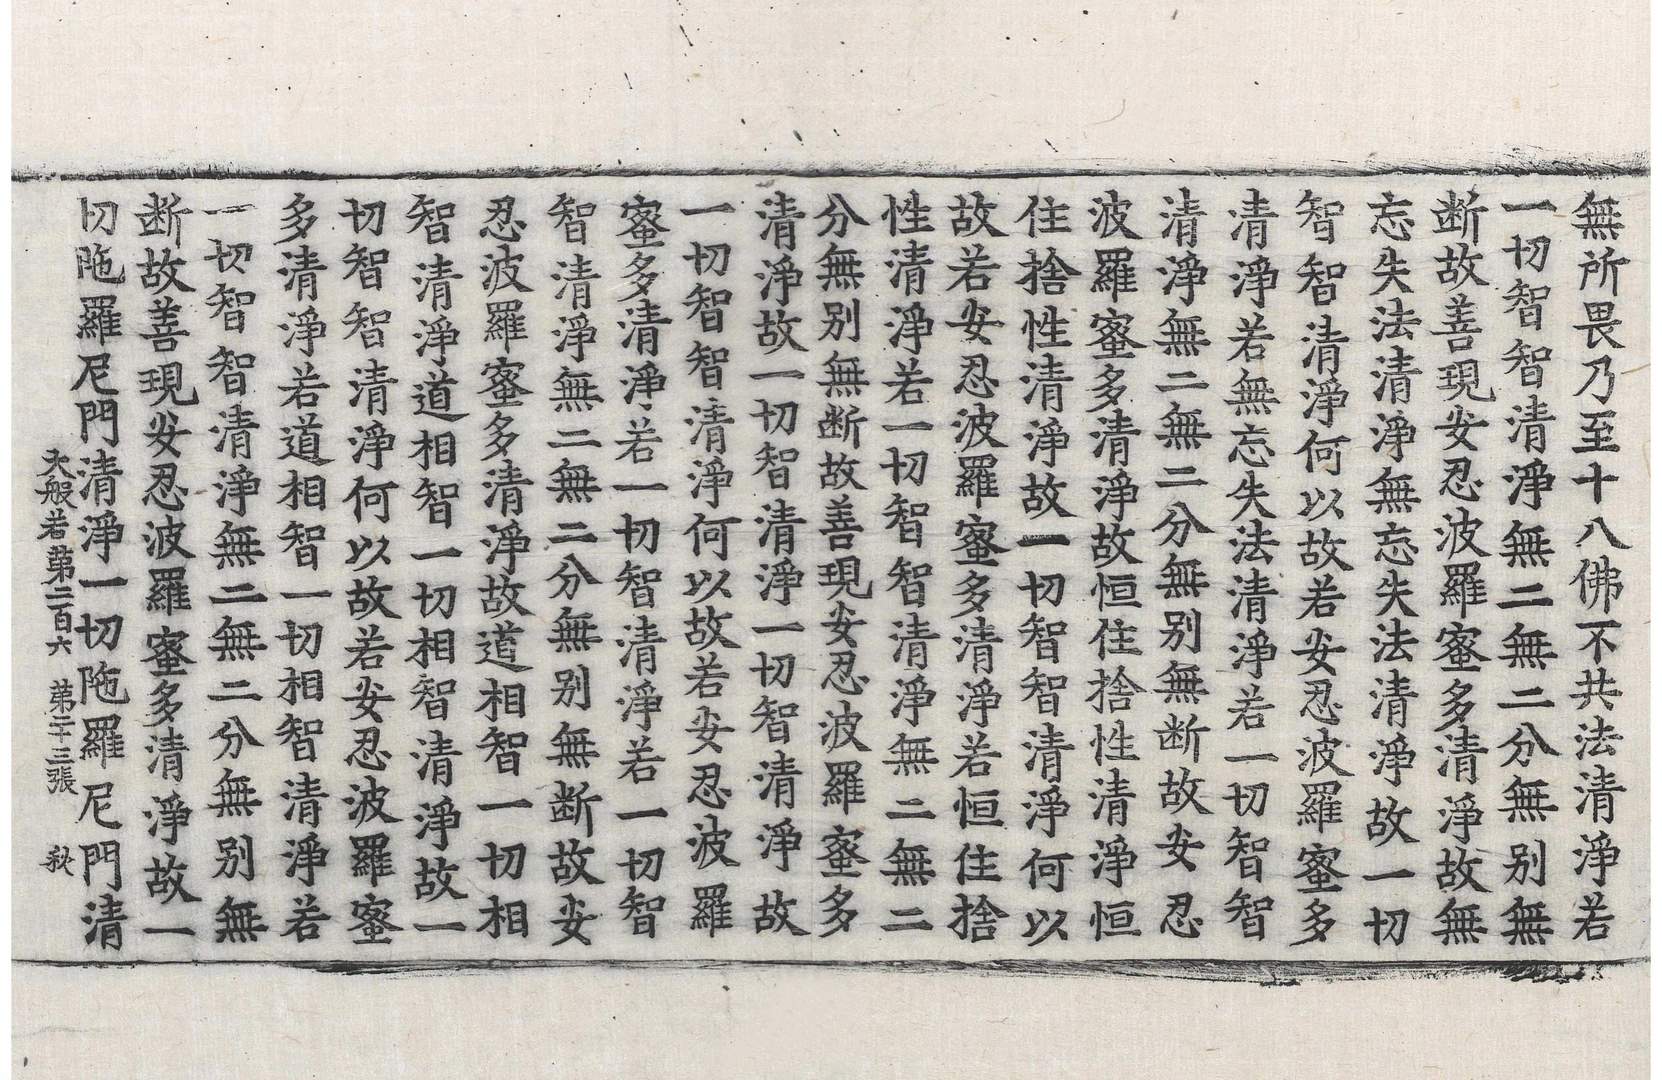 無所畏乃至十八佛不共法清淨若
一切智智清淨無二無二分無別無
断故善現安忍波羅蜜多清淨故無
忘失法清淨無忘失法清淨故一切
智智清淨何以故若安忍波羅蜜多
清淨若無忘失法清淨若一切智智
清淨無二無二分無別無断故安忍
波羅蜜多清淨故恒住捨性清淨恒
住捨性清淨故一切智智清淨何以
故若安忍波羅蜜多清淨若恒住捨
性清淨若一切智智清淨無二無二
分無別無断故善現安忍波羅蜜多
清淨故一切智清淨一切智清淨故
一切智智清淨何以故若安忍波羅
蜜多清淨若一切智清淨若一切智
智清淨無二無二分無別無断故安
忍波羅蜜多清淨故道相智一切相
智清淨道相智一切相智清淨故一
切智智清淨何以故若安忍波羅蜜
多清淨若道相智一切相智清淨若
一切智智清淨無二無二分無別無
断故善現安忍波羅蜜多清淨故一
切陁羅尼門清淨一切陁羅尼門清
大般若第二百六 第二十三張 秋